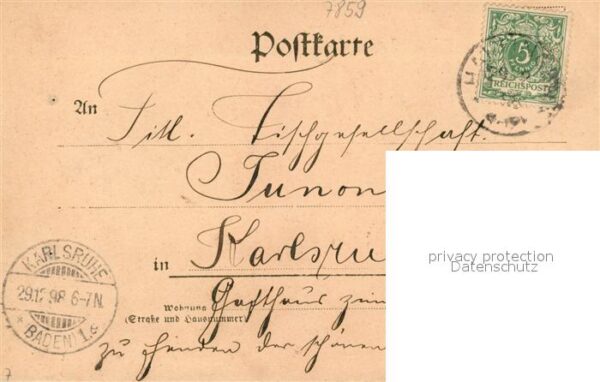 7859
Postkarte
5
REICHSPOST
An
Titl. Tischgesellschaft.
Junon
privacy protection
Datenschutz
in Karlsru
KARLSRUHE
29.12.98 6-7N.
* BADEN) 1.c
Wohnung
(Straße und Hausnummer)
Gasthaus zum
zu Handen der schönen
7